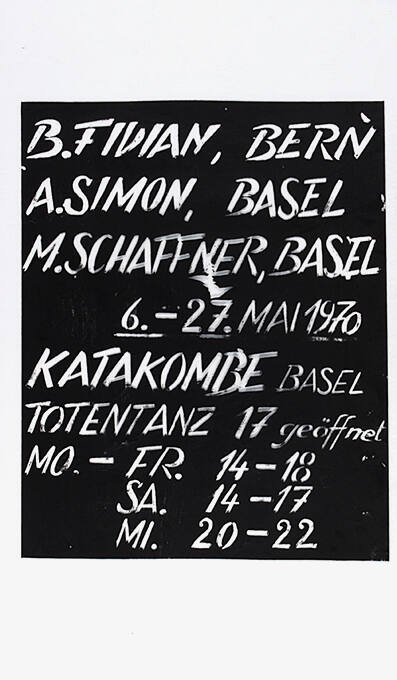 B. FIVIAN, BERN
A. SIMON, BASEL
M. SCHAFFNER, BASEL
6. – 27. MAI 1970
KATAKOMBE BASEL
TOTENTANZ 17 geöffnet
MO. – FR. 14 – 18
SA. 14 – 17
MI. 20 – 22